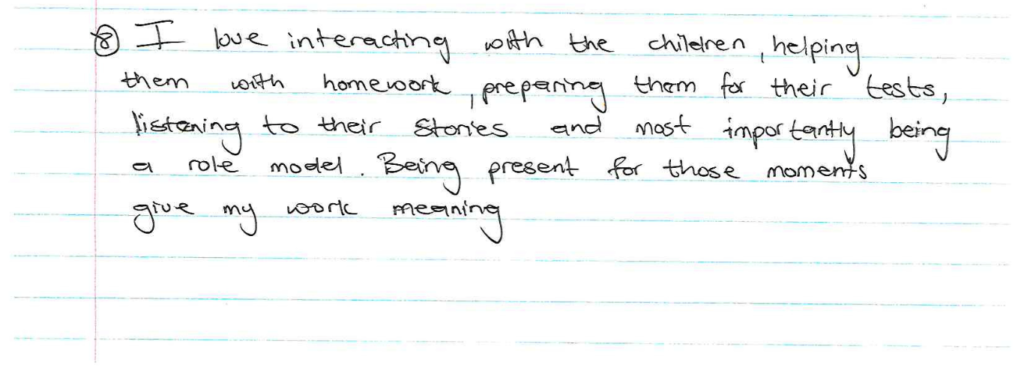 ⑧ I love interacting with the children, helping
them with homework, preparing them for their tests,
listening to their stories and most importantly being
a role model. Being present for those moments
give my work meaning